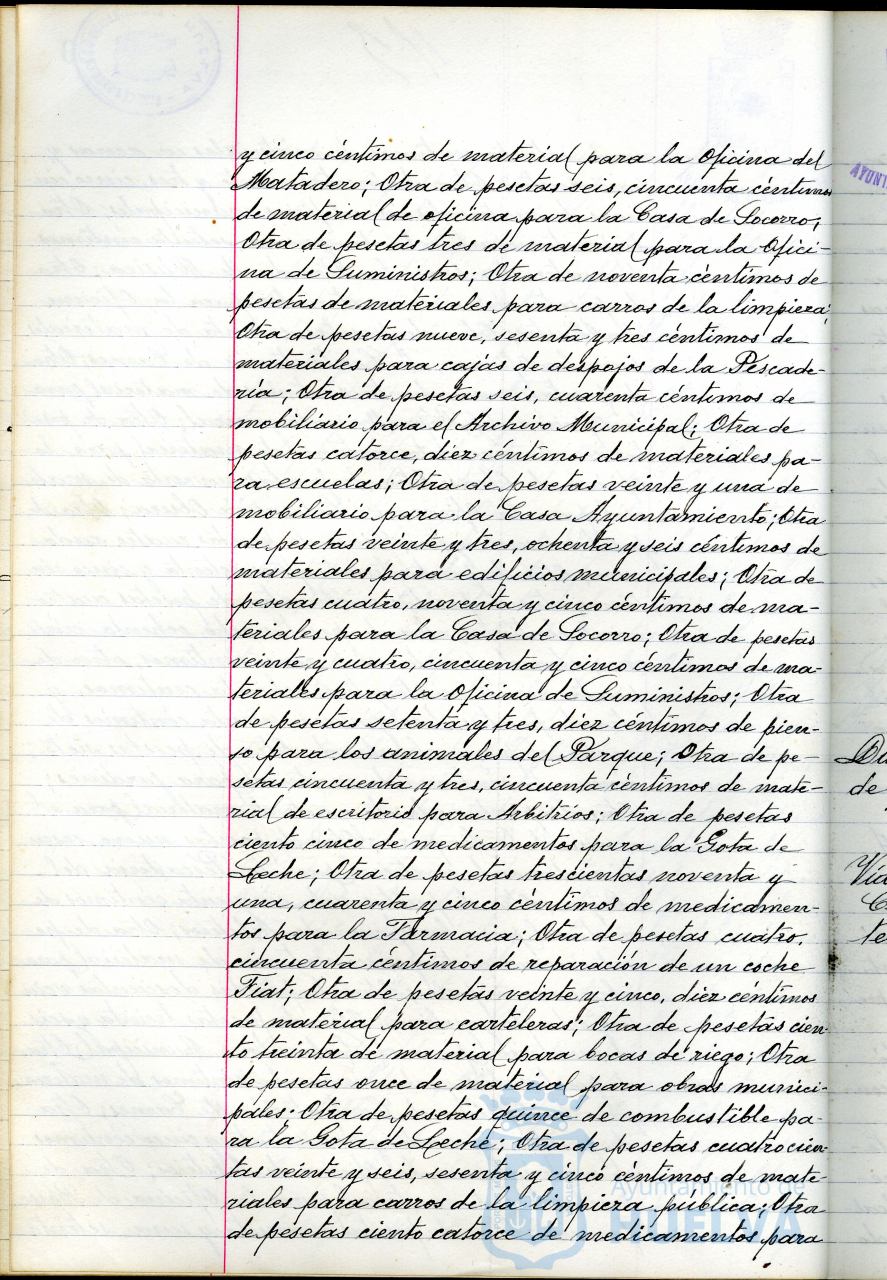 y cinco céntimos de material para la Oficina del
Matadero; Otra de pesetas seis, cincuenta céntimos
de material de oficina para la Casa de Socorro;
Otra de pesetas tres de material para la Ofici-
na de Suministros; Otra de noventa céntimos de
pesetas de materiales para carros de la limpieza;
Otra de pesetas nueve, sesenta y tres céntimos de
materiales para cajas de despojos de la Pescade-
ría; Otra de pesetas seis, cuarenta céntimos de
mobiliario para el Archivo Municipal; Otra de
pesetas catorce, diez céntimos de materiales pa-
ra escuelas; Otra de pesetas veinte y una de
mobiliario para la Casa Ayuntamiento; Otra
de pesetas veinte y tres, ochenta y seis céntimos de
materiales para edificios municipales; Otra de
pesetas cuatro, noventa y cinco céntimos de ma-
teriales para la Casa de Socorro; Otra de pesetas
veinte y cuatro, cincuenta y cinco céntimos de ma-
teriales para la Oficina de Suministros; Otra
de pesetas setenta y tres, diez céntimos de pien-
so para los animales del Parque; Otra de pe-
setas cincuenta y tres, cincuenta céntimos de mate-
rial de escritorio para Arbitrios; Otra de pesetas
ciento cinco de medicamentos para la Gota de
Leche; Otra de pesetas trescientas noventa y
una, cuarenta y cinco céntimos de medicamen-
tos para la Farmacia; Otra de pesetas cuatro,
cincuenta céntimos de reparación de un coche
Fiat; Otra de pesetas veinte y cinco, diez céntimos
de material para carteleras; Otra de pesetas cien-
to treinta de material para bocas de riego; Otra
de pesetas once de material para obras munici-
pales; Otra de pesetas quince de combustible pa-
ra la Gota de Leche; Otra de pesetas cuatrocien-
tas veinte y seis, sesenta y cinco céntimos de mate-
riales para carros de la limpieza pública; Otra
de pesetas ciento catorce de medicamentos para
Ayuntamiento de
HUELVA
de
te